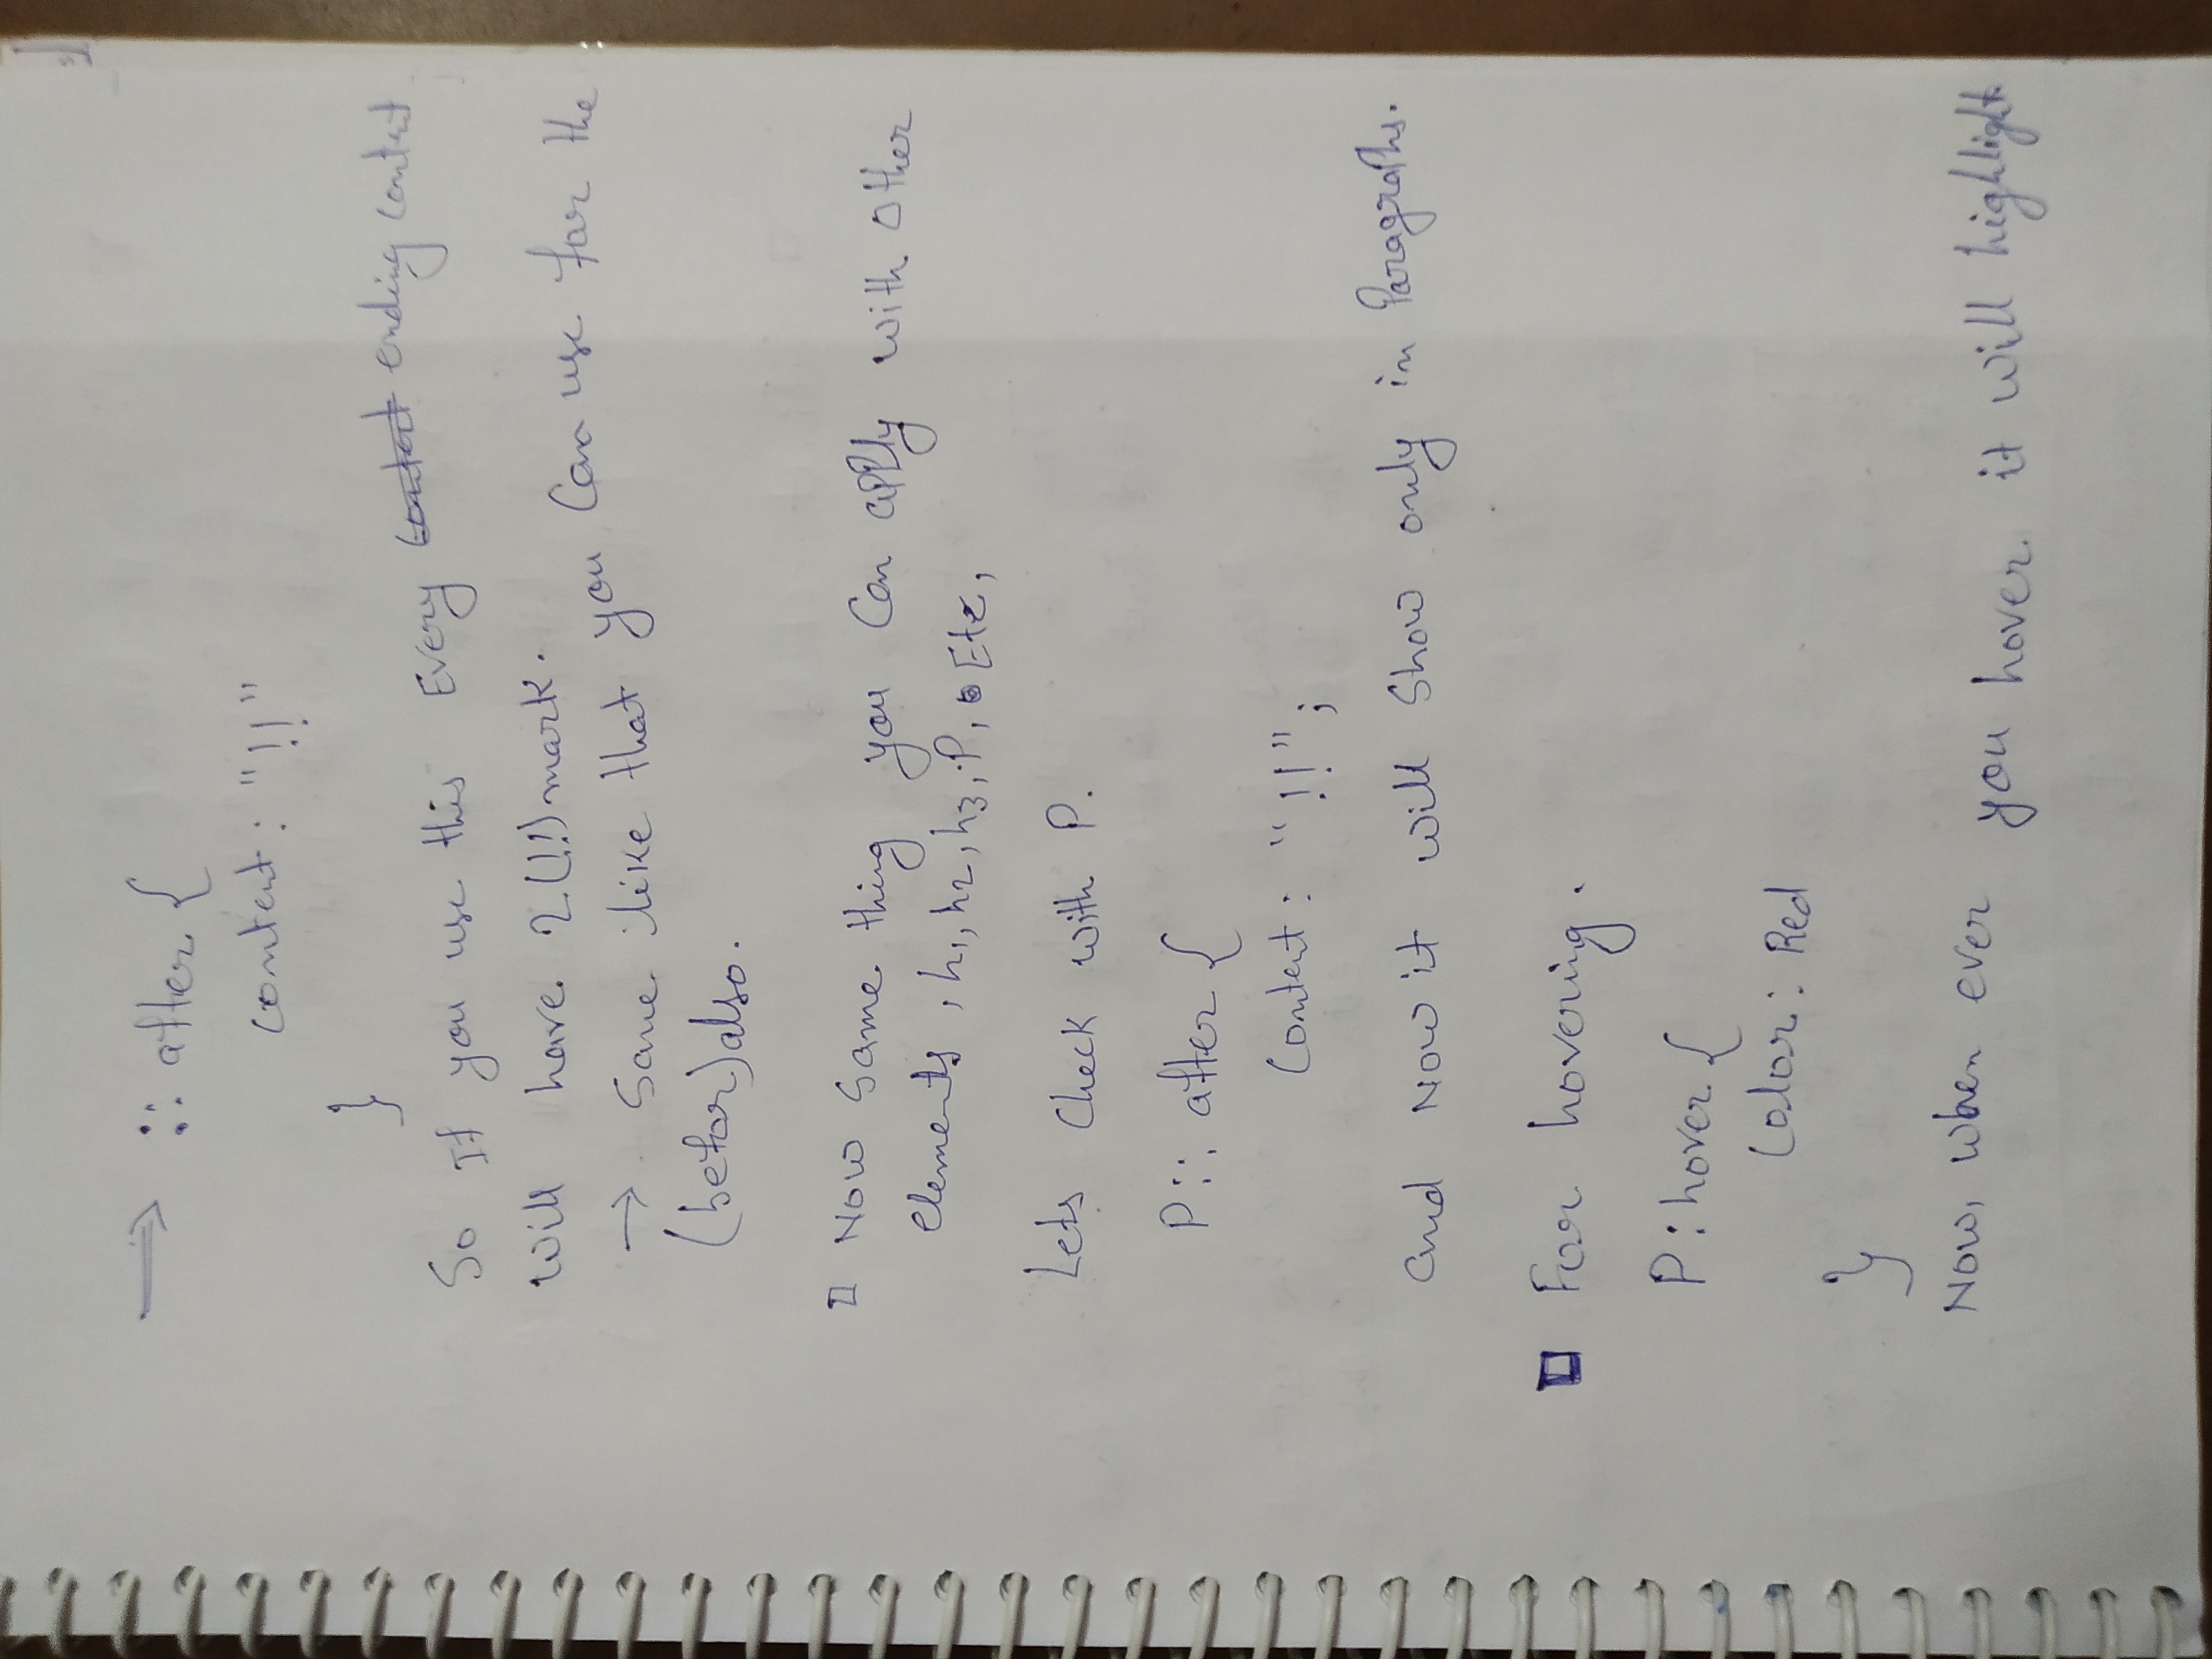 → :: after {
content: "!!"
}
So If you use this Every content ending content
will have 2(!!) mark.
→ Same like that you Can use for the
(befor) also.
□ Now Same thing you Can apply with other
elements, h1, h2, h3, P, Etc,
Lets Check with P.
P:: after {
Content: "!!";
and Now it will Show only in Paragraphs.
□ For hovering.
P: hover {
Color: Red
}
Now, when ever you hover it will highlight